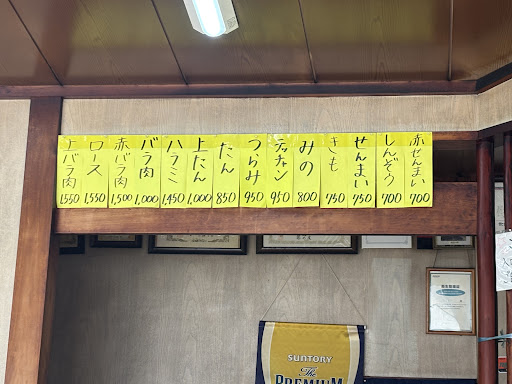 赤せんまい 700
しんぞう 700
せんまい 750
きも 750
みの 800
テッチャン 950
つらみ 950
たん 850
上たん 1,000
ハラミ 1,450
バラ肉 1,000
赤バラ肉 1,500
ロース 1,550
上バラ肉 1,550
SUNTORY
The
PREMIUM